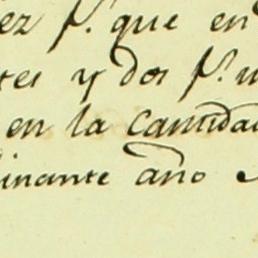 ez p.r que en
tes y dos p.r
en la Cantidad
inante año